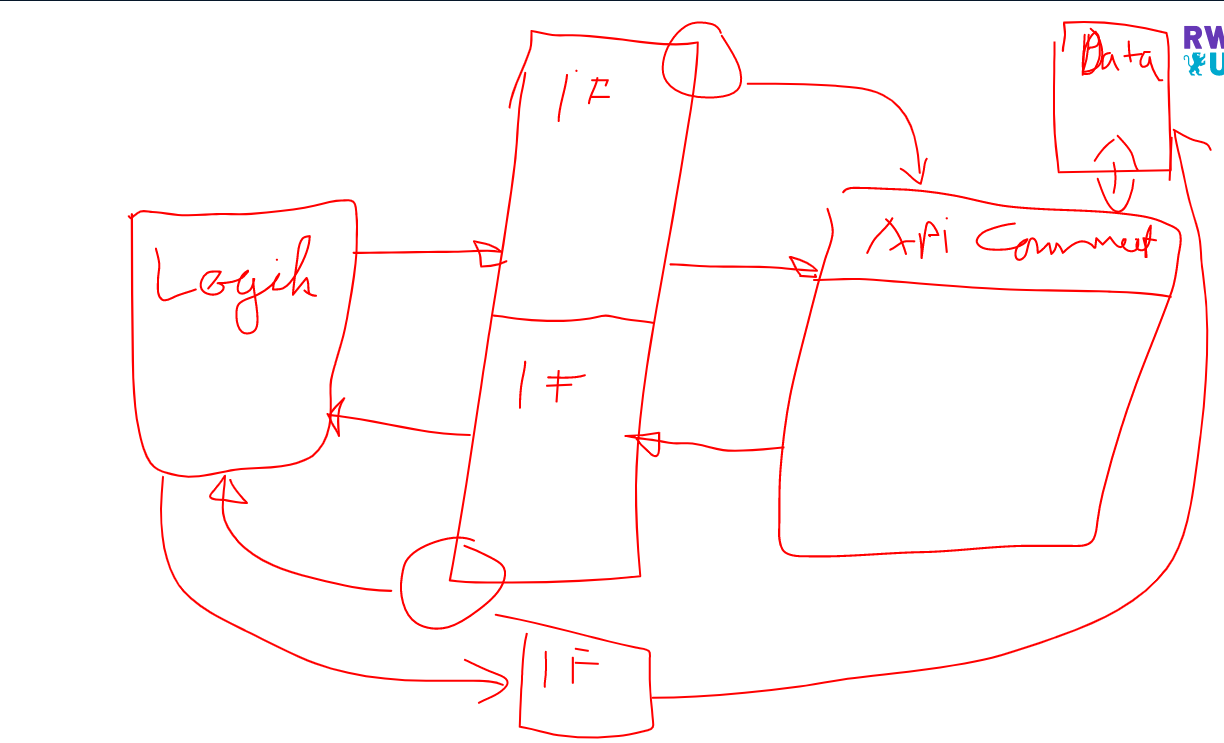 IF
Data
RW
U
Logik
Api Connect
IF
IF